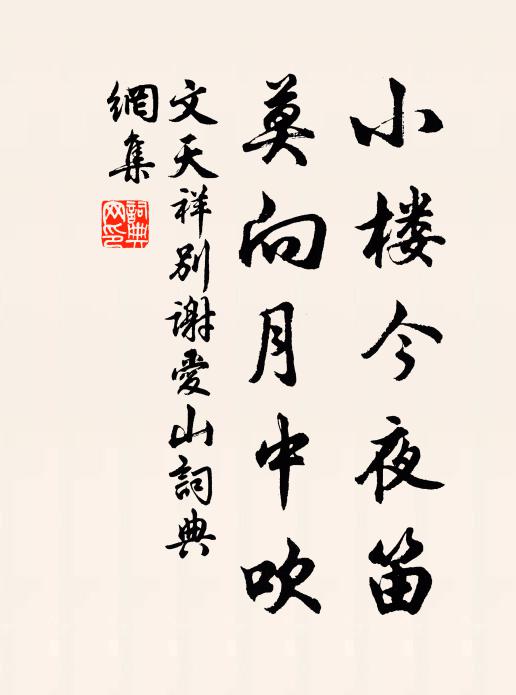 小楼今夜笛
莫向月中吹
文天祥别谢爱山詞典
網集
詞典网印